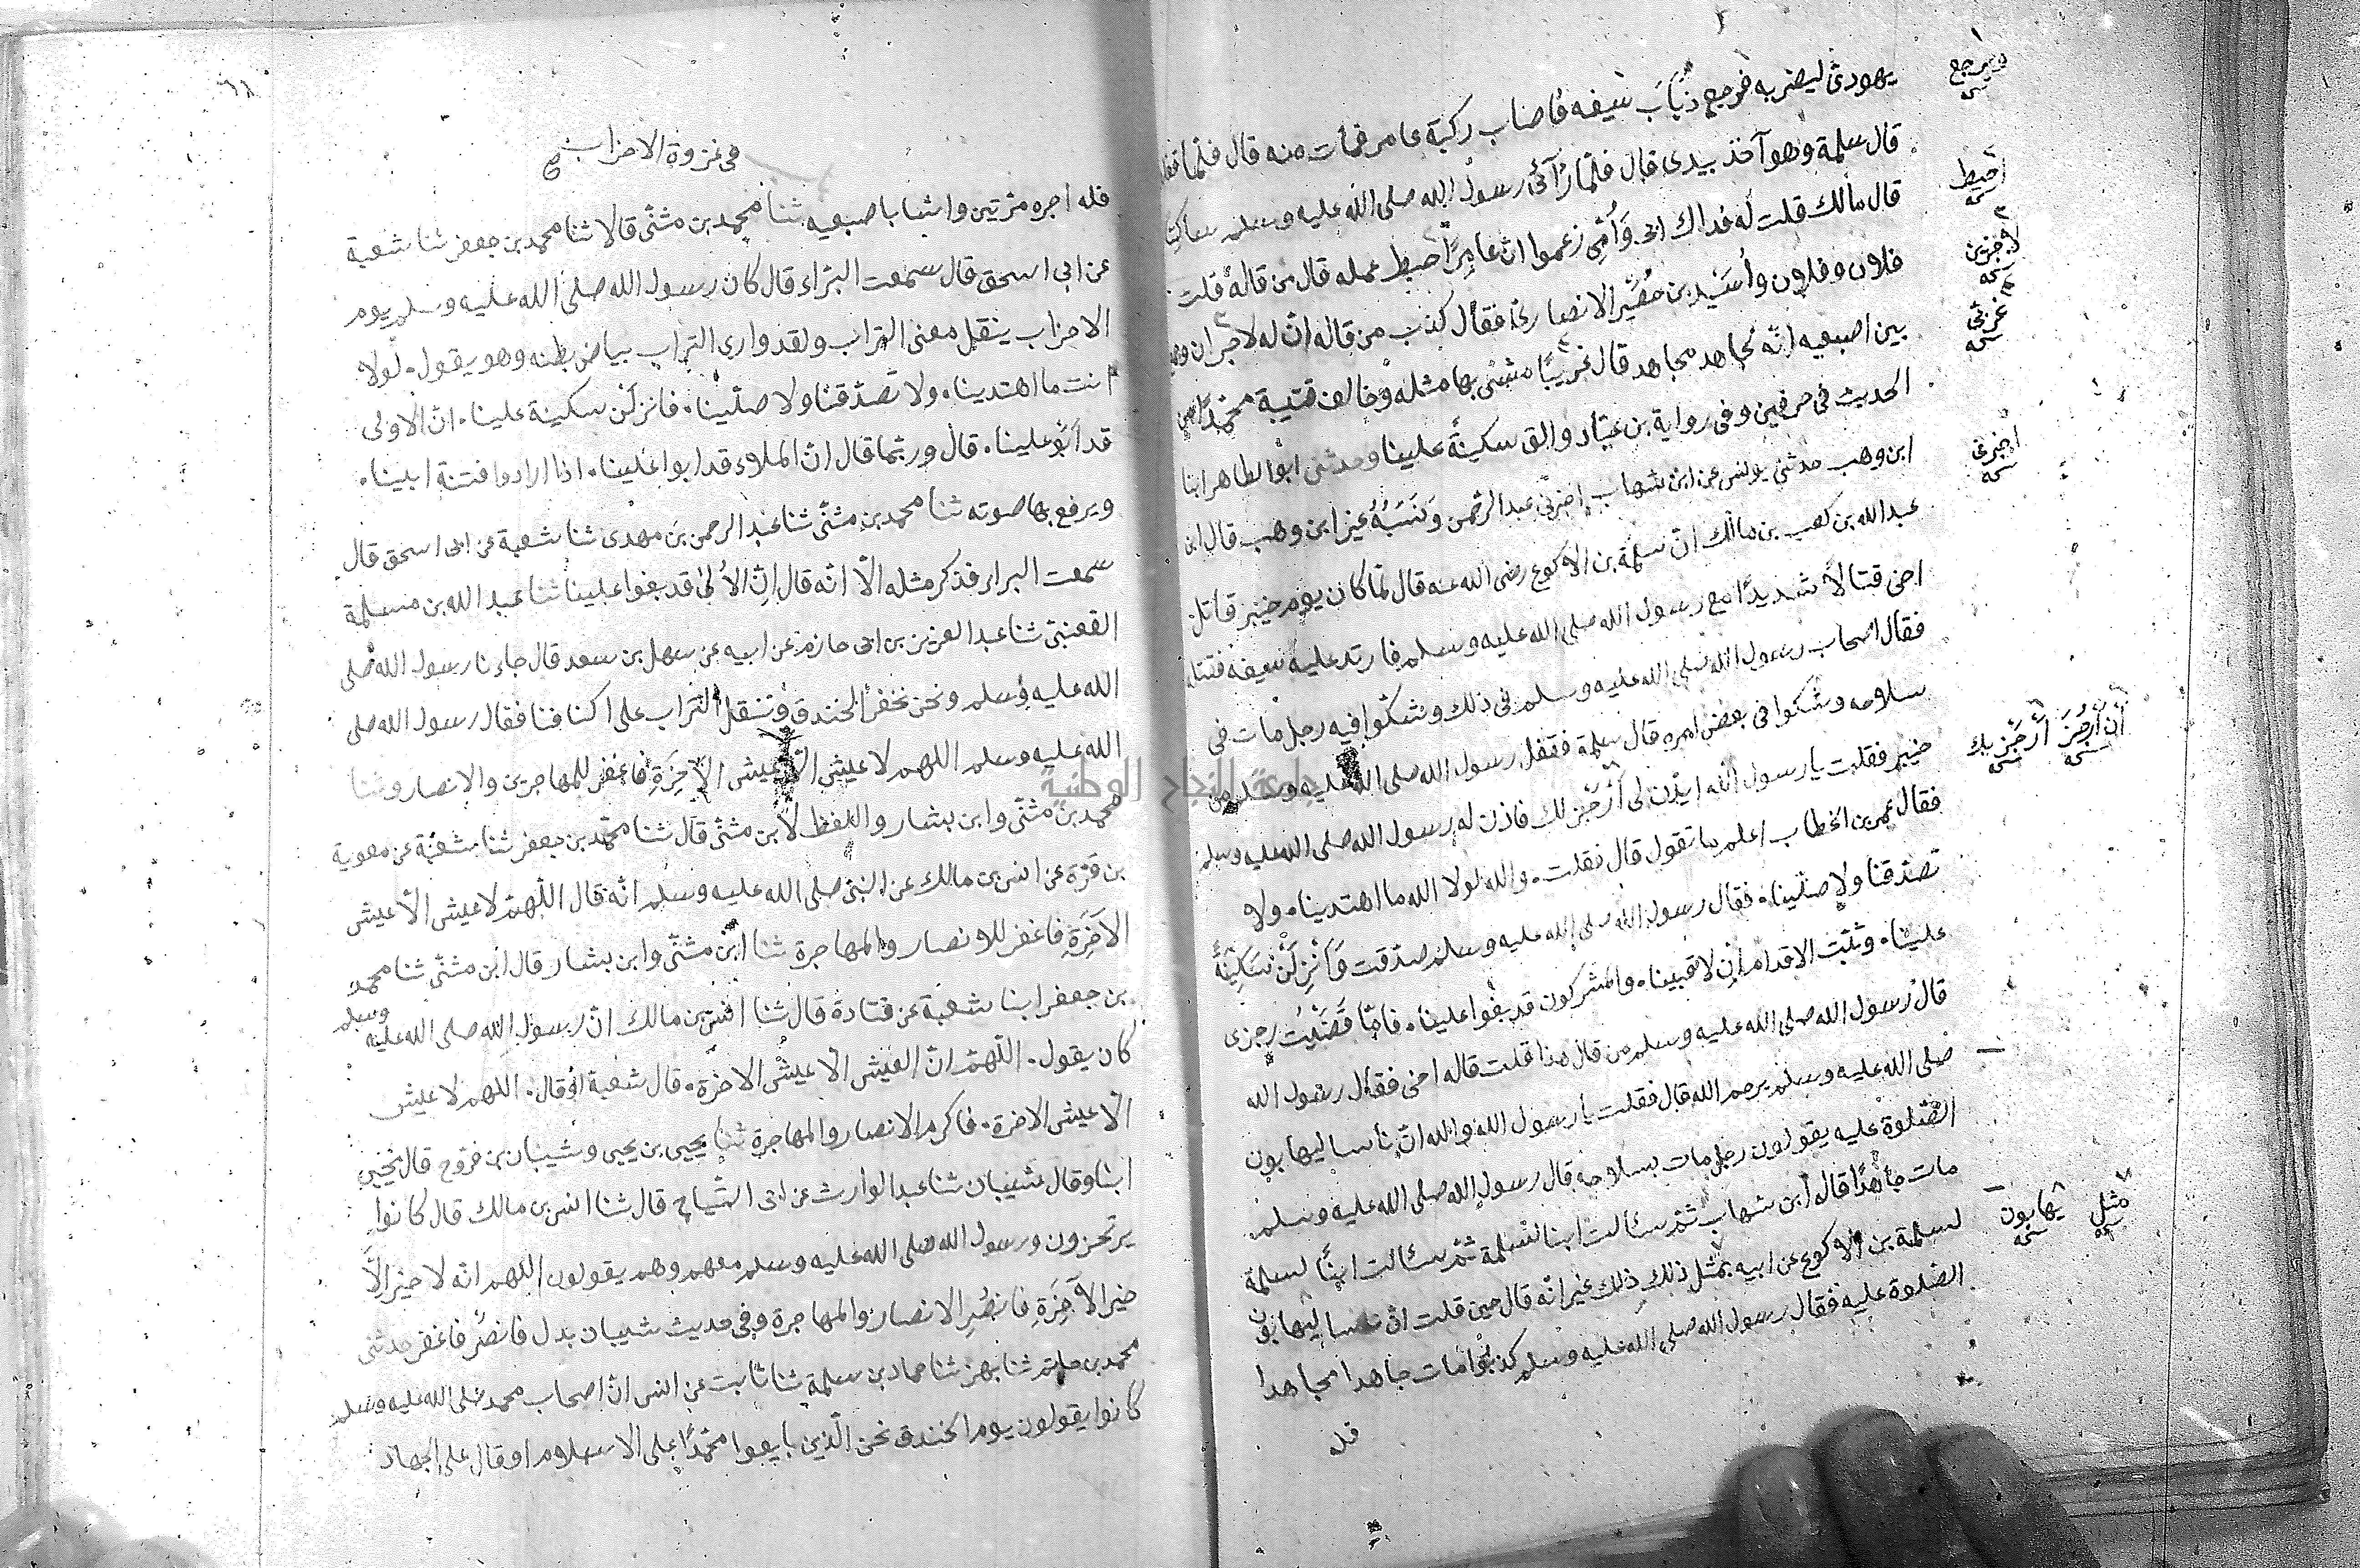 يهودى ليضربه فرجع ذبابَ سيفه فاصاب ركبة عامر فمات منه قال فلما قفلوا
قال سلمة وهو آخذ بيدى قال فلمّا رآنى رسول الله صلى الله عليه وسلم ساكتا
قال مالك قلت له فداك ابى وَأُمّى زعموا انّ عامرًا حبط عمله قال من قاله قلت
فلان وفلان وأُسَيْد بن حُضَيْر الانصارى فقال كذب من قاله انّ له لاجران وجمع
بين اصبعيه انّه لجاهد مجاهد قال عربيًّا مشى بها مثله وخالف قتيبة محمّدًا من
الحديث فى حرفين وفى رواية بن عبّاد والق سكينةً علينا وحدثنى ابو الطاهر ابنا
ابن وهب حدثنى يونس عن ابن شهاب اخبرنى عبد الرحمن وَنَسَبَهُ غير ابن وهب قال ابن
عبد الله بن كعب بن مالك انّ سلمة بن الاكوع رضى الله عنه قال لمّا كان يوم خيبر قاتل
اخى قتالاً شديدًا مع رسول الله صلى الله عليه وسلم فارتد عليه سيفه فقتله
فقال اصحاب رسول الله صلى الله عليه وسلم فى ذلك وشكّوا فيه رجل مات فى
سلاحه وشكوا فى بعض امره قال سلمة فقفل رسول الله صلى الله عليه وسلم من
خيبر فقلت يا رسول الله ايذن لى أَرْجُزْ لك فاذن له رسول الله صلى الله عليه وسلم
فقال عمر بن الخطاب اعلم ما تقول قال فقلت. والله لولا الله ما اهتدينا. ولا
تصدّقنا ولا صلّينا. فقال رسول الله صلى الله عليه وسلم صدّقت وَأَنْزِلَنْ سَكِينَةً
علينا. وثبّت الاقدام ان لاقينا. والمشركون قد بغوا علينا. فلمّا قَضَيْتُ رجزى
قال رسول الله صلى الله عليه وسلم من قال هذا قلت قاله اخى فقال رسول الله
صلى الله عليه وسلم يرحمه الله قال فقلت يا رسول الله والله انّ ناسا ليهابون
الصّلوة عليه يقولون رجل مات بسلاحه قال رسول الله صلى الله عليه وسلم
مات جاهدًا قاله ابن شهاب ثمّ سئالت ابنا لسلمة ثمّ سئالت ابنًا لسلمة
لسلمة بن الاكوع عن ابيه بمثل ذلك ذلك غير انّه قال حين قلت انّ ناسا ليهابون
الصّلوة عليه فقال رسول الله صلى الله عليه وسلم كذبوا مات جاهدا مجاهدا
فله
احبط
نسخه
عربى
نسخه
اخبرنى
نسخه
أن أرجز
نسخه
أرجز بك
نسخه
يهابون
نسخه
مثل
نسخه
جامعة النجاح الوطنية
٦٨
فى غزوة الاحزاب
فله اجره مرّتين واشار باصبعيه ثنا محمد بن مثنّى قالا ثنا محمد بن جعفر ثنا شعبة
عن ابى اسحق قال سمعت البرّاء قال كان رسول الله صلى الله عليه وسلم يوم
الاحزاب ينقل معنى التراب ولقد وارى التراب بياض بطنه وهو يقول. لولا
انت ما اهتدينا. ولا تصدّقنا ولا صلّينا. فانزلن سكينة علينا. انّ الاولى
قد ابو علينا. قال وربّما قال انّ الملاء قد ابوا علينا. اذا ارادوا فتنة ابينا.
ويرفع بها صوته ثنا محمد بن مثنّى ثنا عبد الرحمن بن مهدى ثنا شعبة عن ابى اسحق قال
سمعت البراء فذكر مثله الّا انّه قال انّ الأُلى قد بغوا علينا ثنا عبد الله بن مسلمة
القعنبىّ ثنا عبد العزيز بن ابى حازم عن ابيه عن سهل بن سعد قال جاءنا رسول الله صلى
الله عليه وسلم ونحن نحفر الخندق وننقل التراب على اكتافنا فقال رسول الله صلى
الله عليه وسلم اللهم لا عيش الّا عيش الآخِرَةِ فاغفر للمهاجرين والانصار وثنا
محمد بن مثنّى وابن بشار واللفظ لابن مثنّى قال ثنا محمّد بن جعفر ثنا شعبة عن معوية
بن قرّة عن انس بن مالك عن النبىّ صلى الله عليه وسلم انّه قال اللّهمّ لا عيش الّا عيش
الآخَرَةِ فاغفر للانصار والمهاجرة ثنا ابن مثنّى وابن بشار قال ابن مثنّى ثنا محمد
بن جعفر ابنا شعبة عن قتادة قال ثنا انس بن مالك انّ رسول الله صلى الله عليه وسلم
كان يقول. اللّهمّ انّ العيش الّا عيش الاخرة. قال شعبة او قال. اللهم لا عيش
الّا عيش الاخرة. فاكرم الانصار والمهاجرة ثنا يحيى بن يحيى وشيبان بن فروخ قال يحيى
ابنا وقال شيبان ثنا عبد الوارث عن ابى التّياح قال ثنا انس بن مالك قال كانوا
يرتجزون ورسول الله صلى الله عليه وسلم معهم وهم يقولون اللهم انّه لا خير الّا
خير الآخِرَةِ فانصُرِ الانصار والمهاجرة وفى حديث شيبان بدل فانصُر فاغفر حدثنى
محمد بن حاتم ثنا بهز ثنا حماد بن سلمة ثنا ثابت عن انس انّ اصحاب محمد صلى الله عليه وسلم
كانوا يقولون يوم الخندق نحن الّذين بايعوا محمّدًا على الاسلام او قال على الجهاد